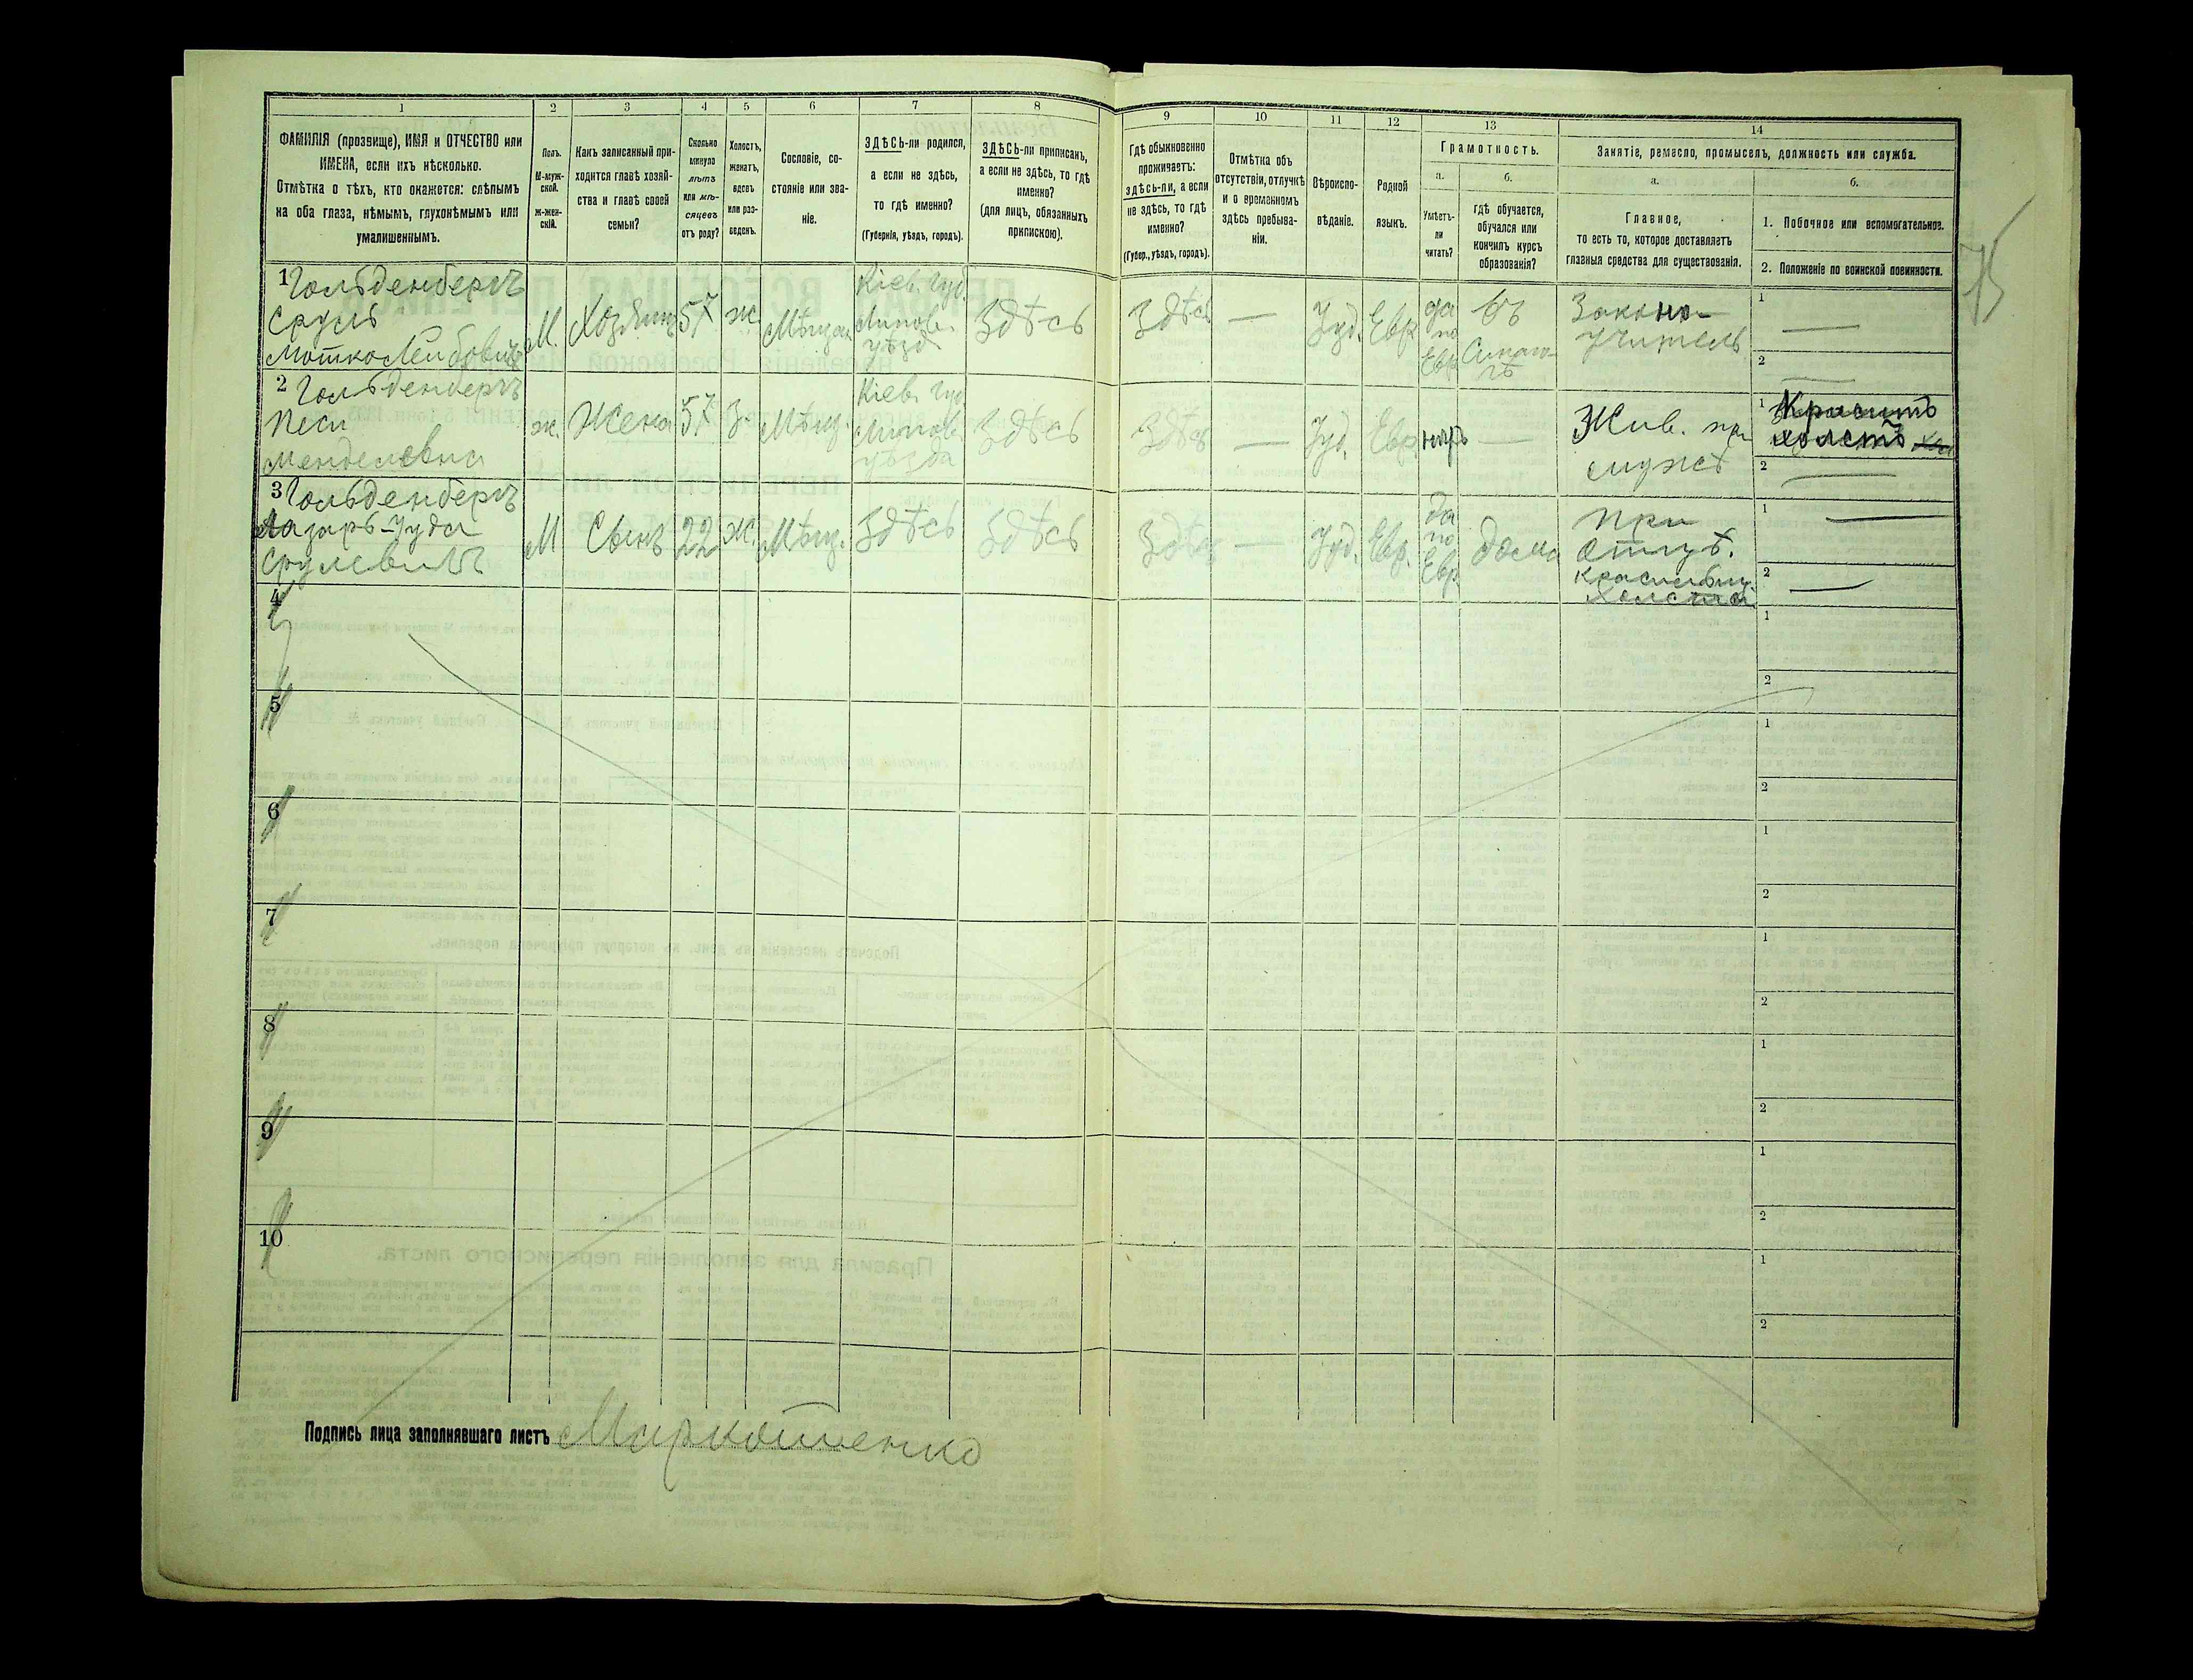 1
2
3
4
5
6
7
8
9
10
11
12
13
14
ФАМИЛІЯ (прозвище), ИМЯ и ОТЧЕСТВО или
ИМЕНА, если ихъ нѣсколько.
Отмѣтка о тѣхъ, кто окажется: слѣпымъ
на оба глаза, нѣмымъ, глухонѣмымъ или
умалишеннымъ.
Полъ.
М-муж-
ской.
Ж-жен-
скій.
Какъ записанный при-
ходится главѣ хозяй-
ства и главѣ своей
семьи?
Сколько
минуло
лѣтъ
или мѣ-
сяцевъ
отъ роду?
Холостъ,
женатъ,
вдовъ
или раз-
веденъ.
Сословіе, со-
стояніе или зва-
ніе.
ЗДѢСЬ-ли родился,
а если не здѣсь,
то гдѣ именно?
(Губернія, уѣздъ, городъ).
ЗДѢСЬ-ли приписанъ,
а если не здѣсь, то гдѣ
именно?
(для лицъ, обязанныхъ
припискою).
Гдѣ обыкновенно
проживаетъ:
здѣсь-ли, а если
не здѣсь, то гдѣ
именно?
(Губер., уѣздъ, городъ).
Отмѣтка объ
отсутствіи, отлучкѣ
и о временномъ
здѣсь пребыва-
ніи.
Вѣроиспо-
вѣданіе.
Родной
языкъ.
Грамотность.
а.
Умѣетъ-
ли
читать?
б.
гдѣ обучается,
обучался или
кончилъ курсъ
образованія?
Занятіе, ремесло, промыселъ, должность или служба.
а.
Главное,
то есть то, которое доставляетъ
главныя средства для существованія.
б.
1. Побочное или вспомогательное.
2. Положеніе по воинской повинности.
75
1 Гольденбергъ
Сруль
Мотко Лейбовичъ
М.
Хозяинъ
57
ж.
Мѣщан
Кіев. Губ.
Липов.
уѣзд
Здѣсь
Здѣсь
—
Іуд.
Евр
да
по
Евр
въ
Синаго-
гѣ
Законо-
учитель
1 —
2 —
2 Гольденбергъ
Песя
Менделевна
ж.
Жена
57
З.
Мѣщ.
Кіев. Губ
Липов.
уѣзда
Здѣсь
Здѣсь
—
Іуд.
Евр.
—
Жив. при
мужѣ
1 Краситъ
холстъ
2 —
3 Гольденбергъ
Лазарь-Іуда
Срулевичъ
М
Сынъ
22
Ж.
Мѣщ.
Здѣсь
Здѣсь
Здѣсь
—
Іуд.
Евр.
да
по
Евр
дома
при
Отцѣ.
1 —
2 —
4
1
2
5
1
2
6
1
2
7
1
2
8
1
2
9
1
2
10
1
2
Подпись лица заполнявшаго листъ Маркотенко